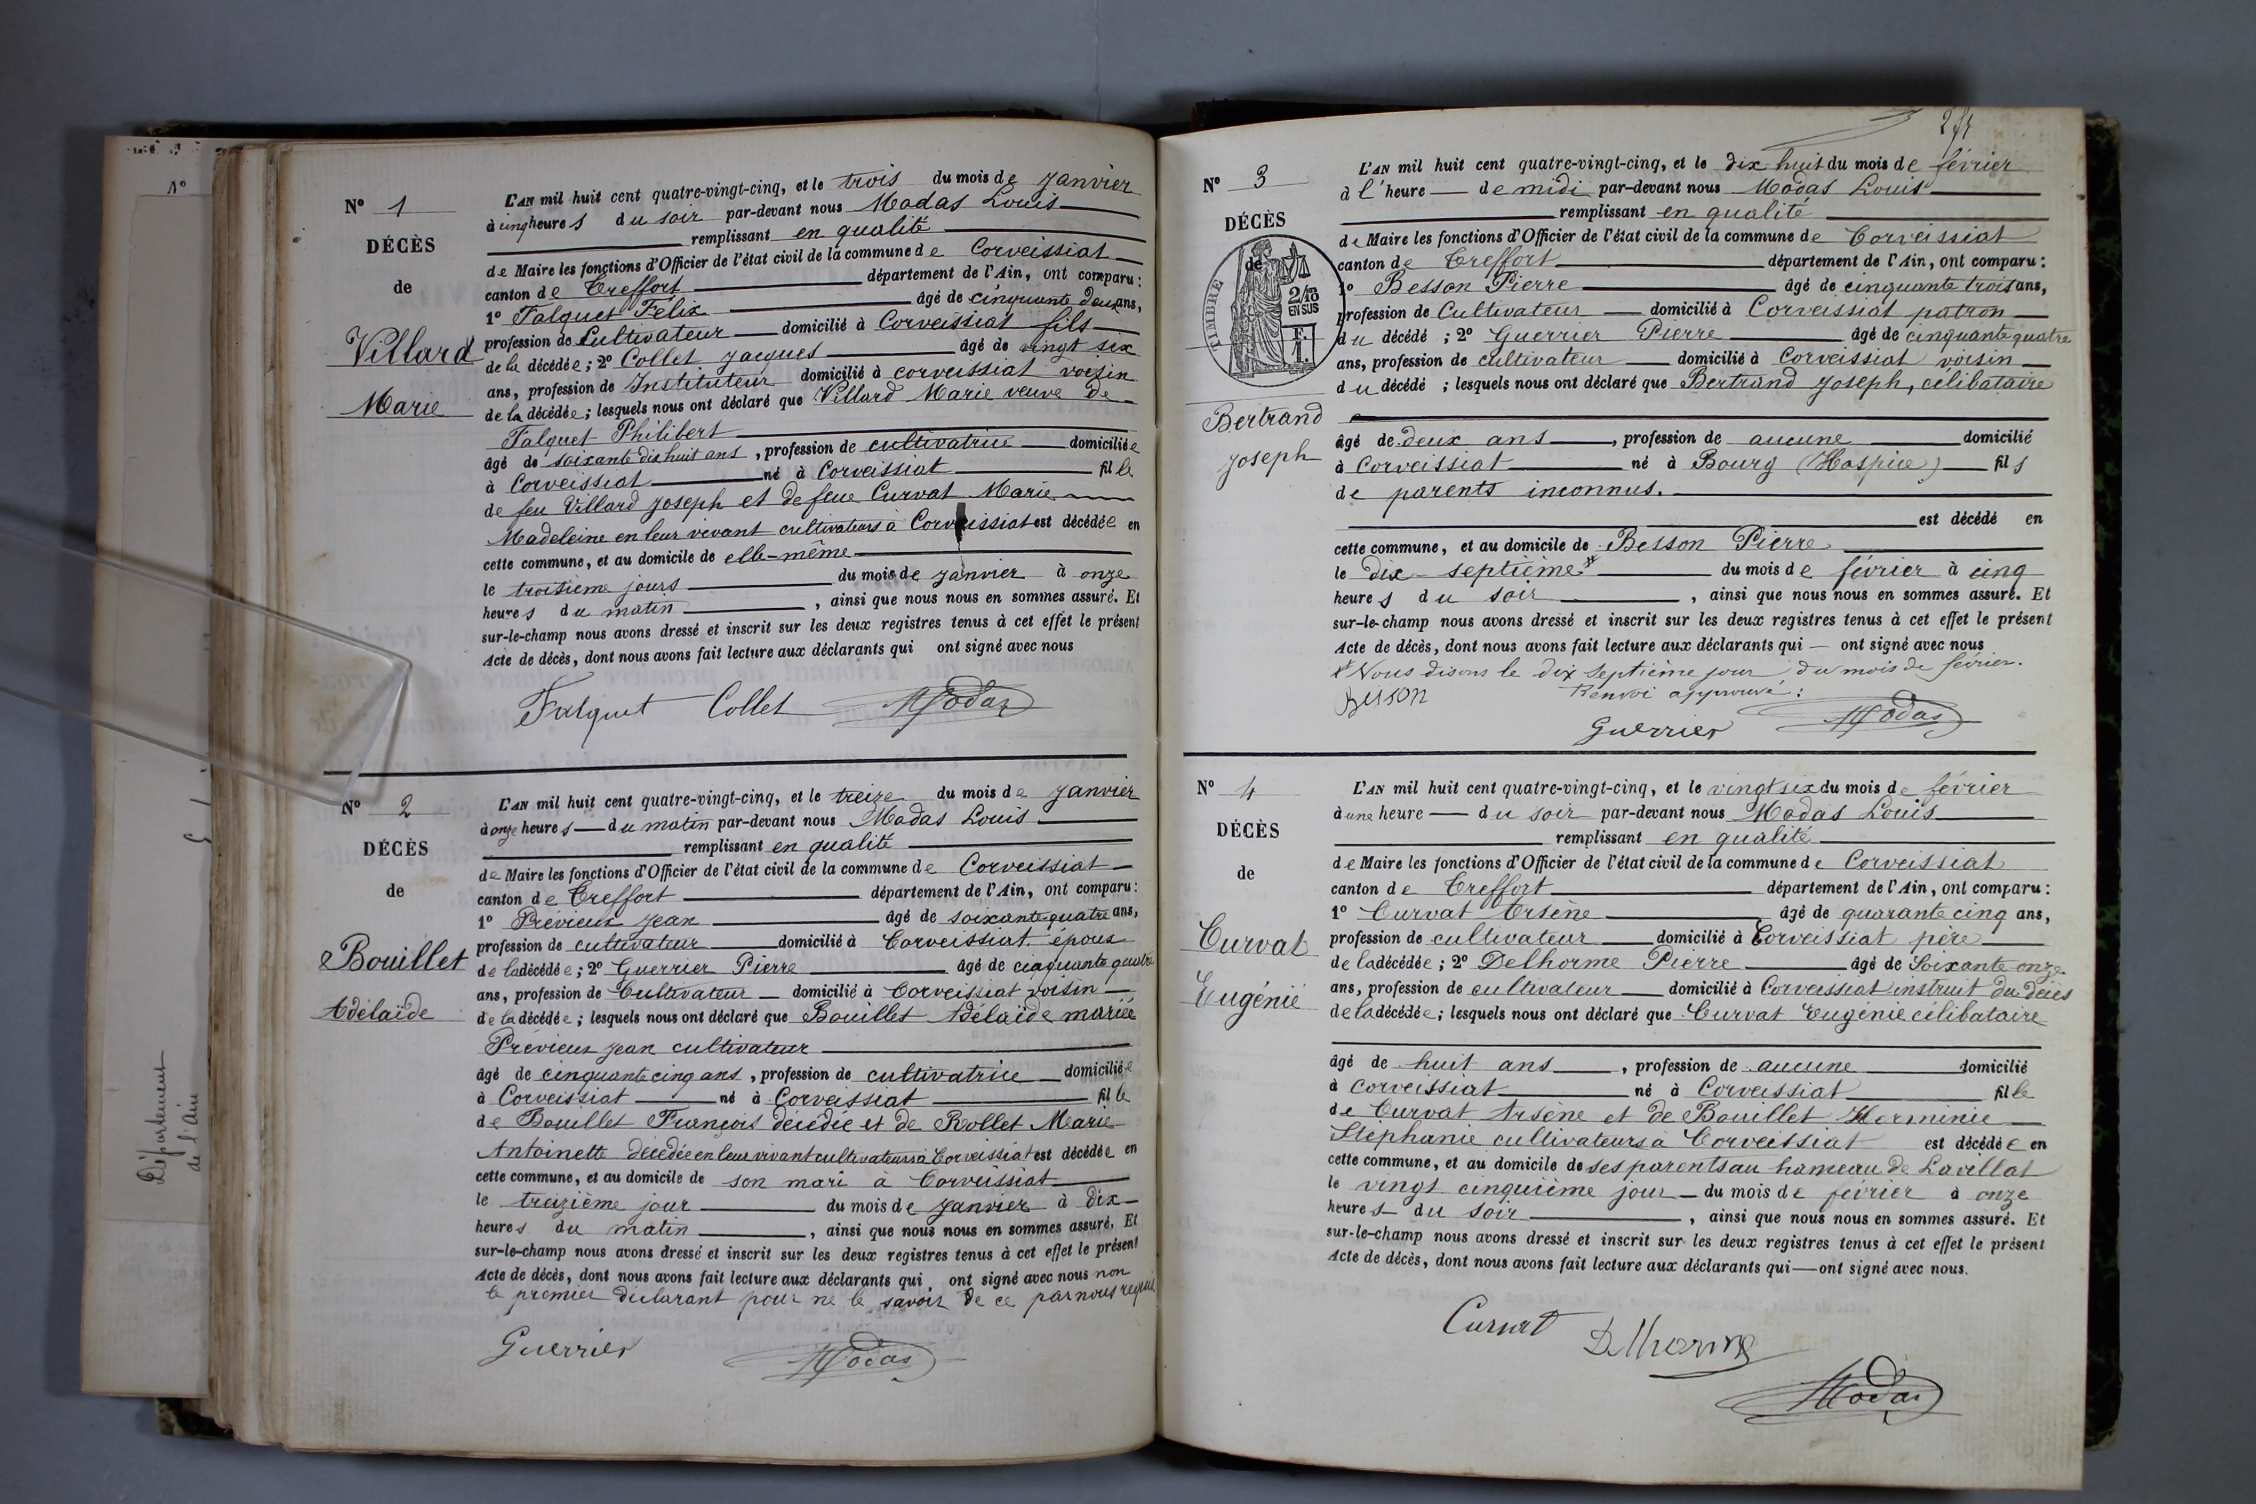 N° 1
DÉCÈS
de
Villard
Marie
L'AN mil huit cent quatre-vingt-cinq, et le trois du mois de Janvier
à cinq heures du soir par-devant nous Modas Louis
remplissant en qualité
de Maire les fonctions d'Officier de l'état civil de la commune de Corveissiat
canton de Treffort département de l'Ain, ont comparu :
1° Falquet Félix âgé de cinquante deux ans,
profession de Cultivateur domicilié à Corveissiat fils
de la décédée ; 2° Collet Jacques âgé de vingt six
ans, profession de Instituteur domicilié à corveissiat voisin
de la décédée ; lesquels nous ont déclaré que Villard Marie veuve de
Falquet Philibert
âgé de soixante dix huit ans, profession de cultivatrice domiciliée
à Corveissiat né à Corveissiat fille
de feu Villard Joseph et de feue Curvat Marie
Madeleine en leur vivant cultivateurs à Corveissiat est décédée en
cette commune, et au domicile de elle-même
le troisième jours du mois de janvier à onze
heures du matin, ainsi que nous nous en sommes assuré. Et
sur-le-champ nous avons dressé et inscrit sur les deux registres tenus à cet effet le présent
Acte de décès, dont nous avons fait lecture aux déclarants qui ont signé avec nous
Falquet Collet Modas
N° 2
DÉCÈS
de
Bouillet
Adélaïde
L'AN mil huit cent quatre-vingt-cinq, et le treize du mois de Janvier
à onze heures du matin par-devant nous Modas Louis
remplissant en qualité
de Maire les fonctions d'Officier de l'état civil de la commune de Corveissiat
canton de Treffort département de l'Ain, ont comparu :
1° Prévieux Jean âgé de soixante quatre ans,
profession de cultivateur domicilié à Corveissiat époux
de la décédée ; 2° Guerrier Pierre âgé de cinquante quatre
ans, profession de Cultivateur domicilié à Corveissiat voisin
de la décédée ; lesquels nous ont déclaré que Bouillet Adélaïde mariée
Prévieux Jean cultivateur
âgé de cinquante cinq ans, profession de cultivatrice domiciliée
à Corveissiat né à Corveissiat fille
de Bouillet François décédé et de Rollet Marie
Antoinette décédée en leur vivant cultivateurs à Corveissiat est décédée en
cette commune, et au domicile de son mari à Corveissiat
le treizième jour du mois de janvier à dix
heures du matin, ainsi que nous nous en sommes assuré. Et
sur-le-champ nous avons dressé et inscrit sur les deux registres tenus à cet effet le présent
Acte de décès, dont nous avons fait lecture aux déclarants qui ont signé avec nous non
le premier déclarant pour ne le savoir de ce par nous requis
Guerrier Modas
Département
de l'Ain
N°
N° 3
DÉCÈS
de
TIMBRE
2/10
EN SUS
F.
1.
Bertrand
Joseph
L'AN mil huit cent quatre-vingt-cinq, et le dix huit du mois de février
à l'heure de midi par-devant nous Modas Louis
remplissant en qualité
de Maire les fonctions d'Officier de l'état civil de la commune de Corveissiat
canton de Treffort département de l'Ain, ont comparu :
1° Besson Pierre âgé de cinquante trois ans,
profession de Cultivateur domicilié à Corveissiat patron
du décédé ; 2° Guerrier Pierre âgé de cinquante quatre
ans, profession de cultivateur domicilié à Corveissiat voisin
du décédé ; lesquels nous ont déclaré que Bertrand Joseph, célibataire
âgé de deux ans, profession de aucune domicilié
à Corveissiat né à Bourg (Hospice) fils
de parents inconnus.
est décédé en
cette commune, et au domicile de Besson Pierre
le dix septième * du mois de février à cinq
heures du soir, ainsi que nous nous en sommes assuré. Et
sur-le-champ nous avons dressé et inscrit sur les deux registres tenus à cet effet le présent
Acte de décès, dont nous avons fait lecture aux déclarants qui ont signé avec nous
* Nous disons le dix septième jour du mois de février.
Renvoi approuvé :
Besson Guerrier Modas
N° 4
DÉCÈS
de
Curvat
Eugénie
L'AN mil huit cent quatre-vingt-cinq, et le vingt six du mois de février
à une heure du soir par-devant nous Modas Louis
remplissant en qualité
de Maire les fonctions d'Officier de l'état civil de la commune de Corveissiat
canton de Treffort département de l'Ain, ont comparu :
1° Curvat Arsène âgé de quarante cinq ans,
profession de cultivateur domicilié à Corveissiat père
de la décédée ; 2° Delhorme Pierre âgé de Soixante onze
ans, profession de cultivateur domicilié à Corveissiat instruit du décès
de la décédée ; lesquels nous ont déclaré que Curvat Eugénie célibataire
âgé de huit ans, profession de aucune domicilié
à corveissiat né à Corveissiat fille
de Curvat Arsène et de Bouillet Herminie
Stéphanie cultivateurs à Corveissiat est décédée en
cette commune, et au domicile de ses parents au hameau de Lavillat
le vingt cinquième jour du mois de février à onze
heures du soir, ainsi que nous nous en sommes assuré. Et
sur-le-champ nous avons dressé et inscrit sur les deux registres tenus à cet effet le présent
Acte de décès, dont nous avons fait lecture aux déclarants qui ont signé avec nous.
Curvat Delhorme
Modas